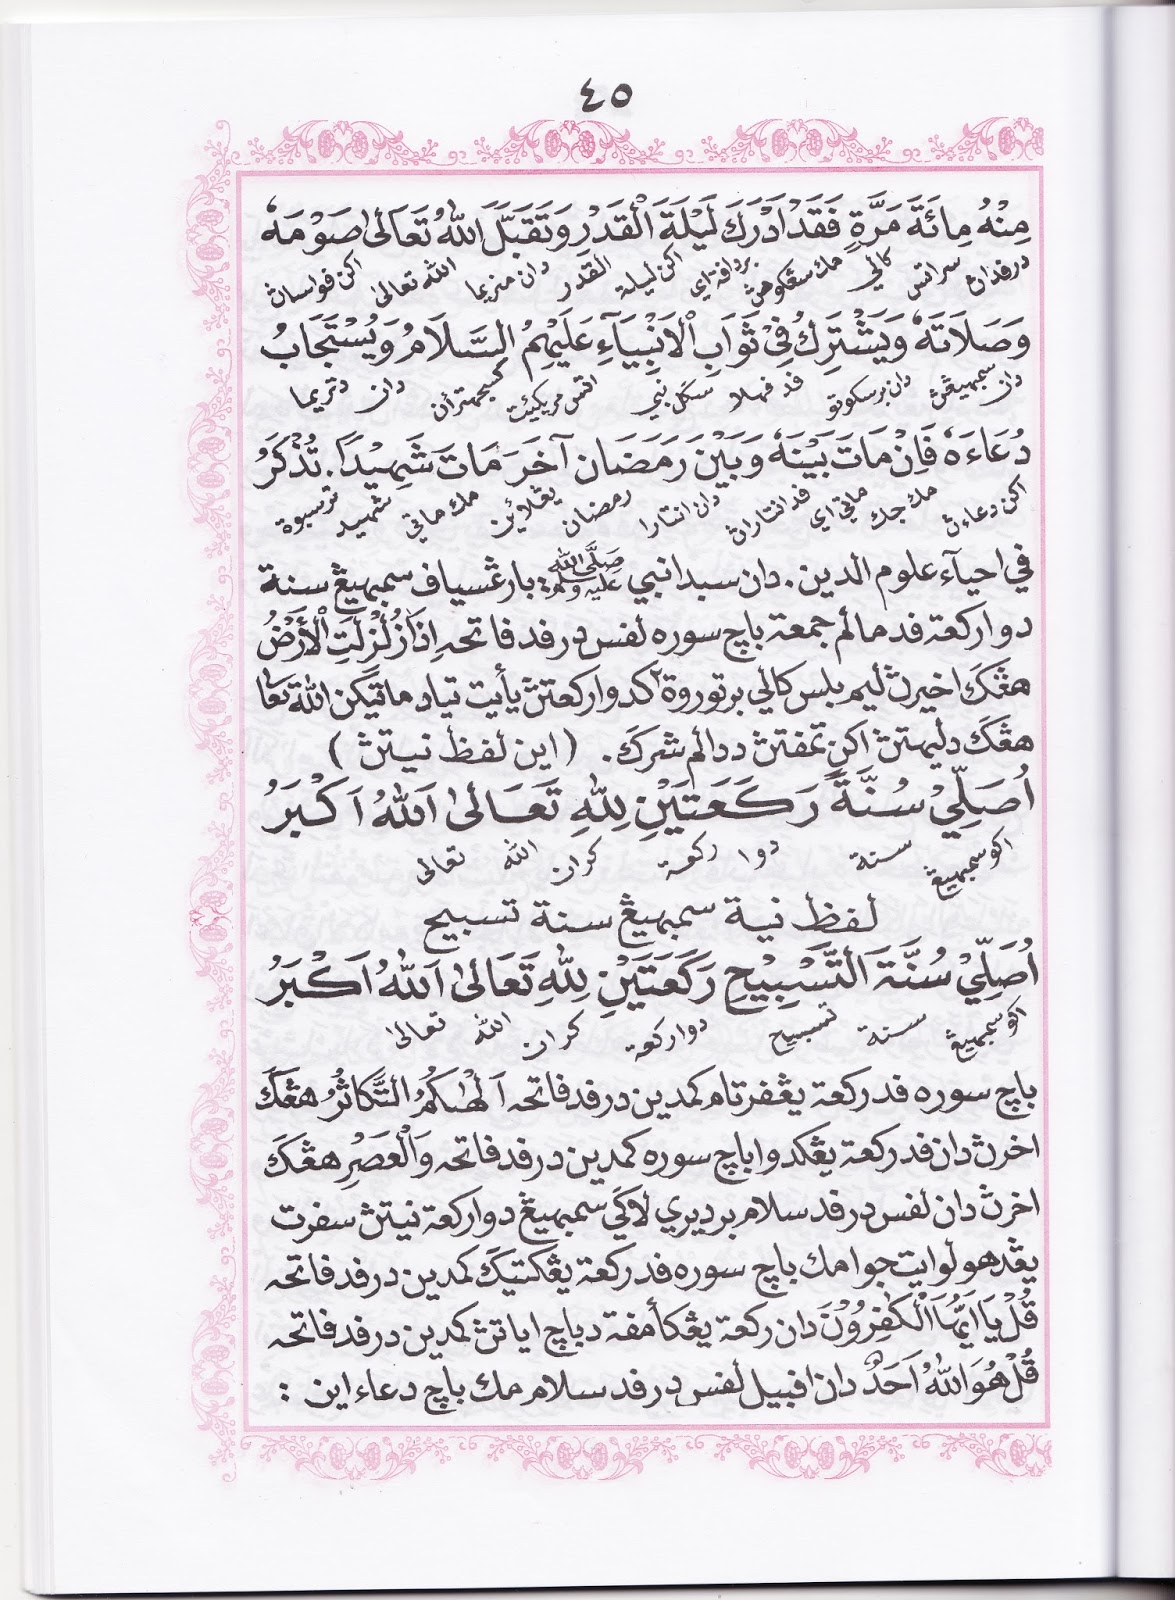 ٤٥
مِنْهُ مِائَةَ مَرَّةٍ فَقَدْ اَدْرَكَ لَيْلَةَ الْقَدْرِ وَتَقَبَّلَ اللّٰهُ تَعَالٰى صَوْمَهٗ
درفدان سراتس كالي مك سڠݢوهڽ بردافة اي اكن ليلة القدر دان منريما الله تعالى اكن فواساڽ
وَصَلَاتَهٗ وَيَشْتَرِكُ فِيْ ثَوَابِ الْاَنْبِيَآءِ عَلَيْهِمُ السَّلَامُ وَيُسْتَجَابُ
دان سمبهيڠڽ دان برسكوتو فد فهلا سݢل نبي اتس مريكئيت كسجهترأن دان دتريما
دُعَاءَهٗ فَاِنْ مَاتَ بَيْنَهٗ وَبَيْنَ رَمَضَان آخَرَ مَاتَ شَهِيْدًا. تُذْكَرُ
اكن دعاءڽ مك جك ماتي اي فد انتاراڽ دان انتارا رمضان يڠلائين مك ماتي شهيد ترسبوة
في احيآء علوم الدين. دان سبدا نبي صَلَّى اللّٰه عليه وسلم؛ بارڠسياف سمبهيڠ سنة
دوا ركعة فد مالم جمعة باچ سوره لفس درفد فاتحه اِذَا زُلْزِلَتِ الْأَرْضُ
هڠݢ اخيرڽ ليم بلس كالي برتوروة٢ كدوا ركعتڽ يأيت تياد ماتيكن الله تعالى
هڠݢ دليهتڽ اكن تمفتڽ ددالم شرݢ. (اين لفظ نيتڽ)
اُصَلِّيْ سُنَّةً رَكَعَتَيْنِ لِلّٰهِ تَعَالٰى اَللّٰهُ اَكْبَرُ
اكو سمبهيڠ سنة دوا ركعة كران الله تعالى
لفظ نية سمبهيڠ سنة تسبيح
اُصَلِّيْ سُنَّةَ التَّسْبِيْحِ رَكَعَتَيْنِ لِلّٰهِ تَعَالٰى اَللّٰهُ اَكْبَرُ
اكو سمبهيڠ سنة تسبيح دوا ركعة كران الله تعالى
باچ سوره فد ركعة يڠفرتام كمدين درفد فاتحه اَلْهٰىكُمُ التَّكَاثُرُ هڠݢ
اخرڽ دان فد ركعة يڠكدوا باچ سوره كمدين درفد فاتحه وَالْعَصْرِ هڠݢ
اخرڽ دان لفس درفد سلام برديري لاݢي سمبهيڠ دوا ركعة نيتڽ سفرت
يڠدهولو ايت جوا مك باچ سوره فد ركعة يڠكتيݢ كمدين درفد فاتحه
قُلْ يَا اَيُّهَا الْكٰفِرُوْنَ دان ركعة يڠكأمفة دباچ اياتڽ كمدين درفد فاتحه
قُلْ هُوَ اللّٰهُ اَحَدٌ دان افبيل لفس درفد سلام مك باچ دعاء اين :